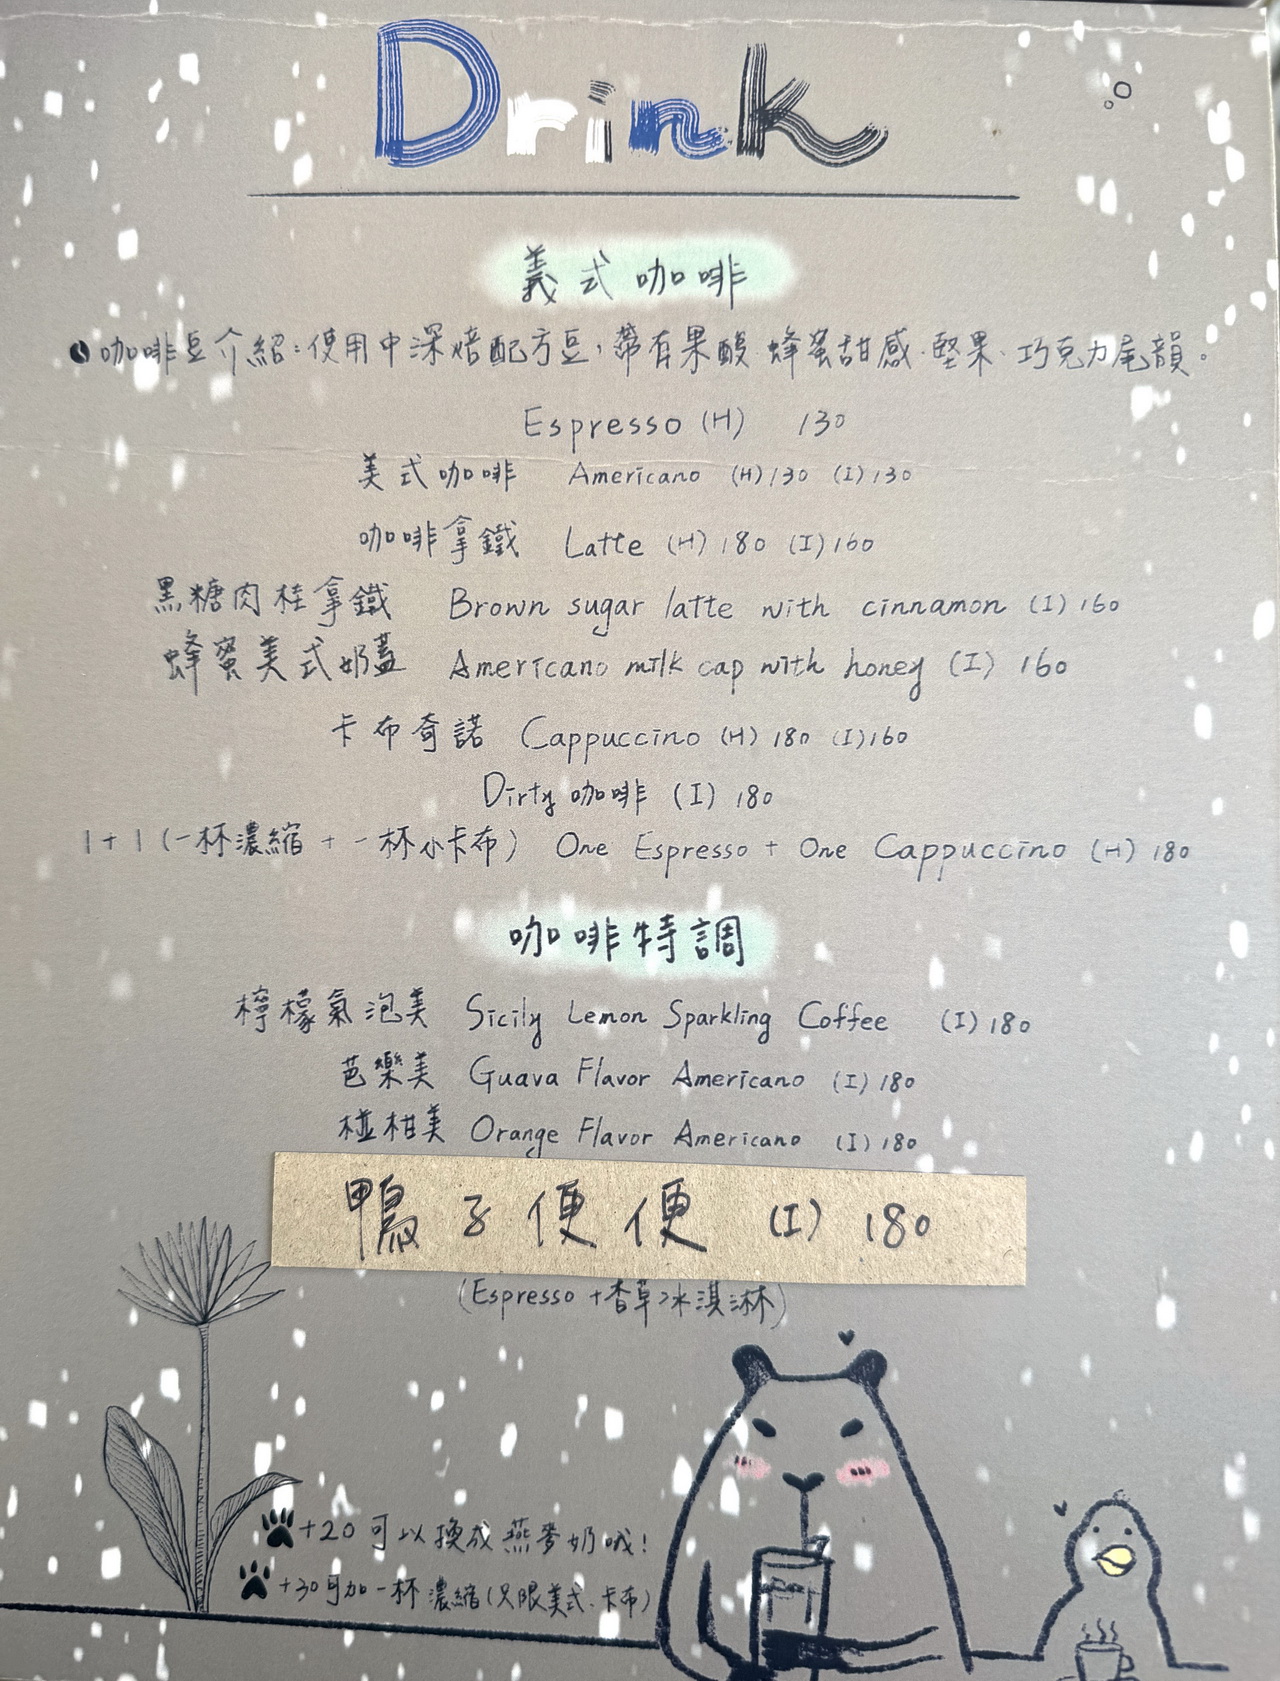 Drink
義式咖啡
咖啡豆介紹：使用中深焙配方豆，帶有果酸、蜂蜜甜感、堅果、巧克力尾韻。
Espresso (H) 130
美式咖啡 Americano (H) 130 (I) 130
咖啡拿鐵 Latte (H) 180 (I) 160
黑糖肉桂拿鐵 Brown sugar latte with cinnamon (I) 160
蜂蜜美式奶蓋 Americano milk cap with honey (I) 160
卡布奇諾 Cappuccino (H) 180 (I) 160
Dirty 咖啡 (I) 180
1+1 (一杯濃縮 + 一杯小卡布) One Espresso + One Cappuccino (H) 180
咖啡特調
檸檬氣泡美 Sicily Lemon Sparkling Coffee (I) 180
芭樂美 Guava Flavor Americano (I) 180
椪柑美 Orange Flavor Americano (I) 180
鴨子便便 (I) 180
(Espresso + 香草冰淇淋)
+20 可以換成燕麥奶哦!
+30 可加一杯濃縮 (只限美式、卡布)